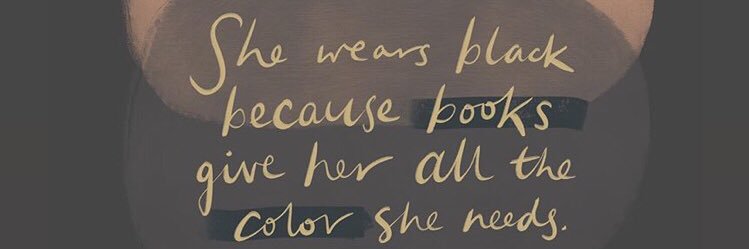 She wears black
because books
give her all the
color she needs.